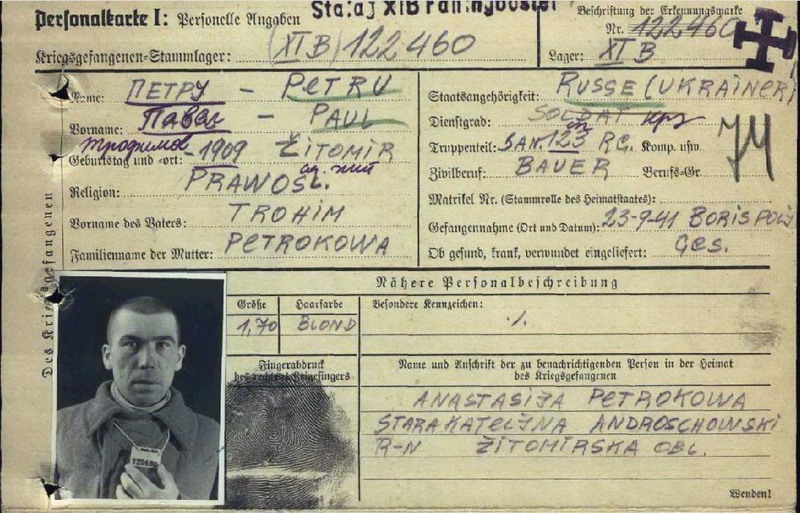 Personalkarte I: Personelle Angaben
Beschriftung der Erkennungsmarke
Nr. 122460
Kriegsgefangenen-Stammlager: (XI B) 122460
Lager: XI B
Des Kriegsgefangenen
Name: ПЕТРУ – PETRU
Vorname: Павел – PAUL
Geburtstag und -ort: -1909 ŽITOMIR
Religion: PRAWOSL.
Vorname des Vaters: TROHIM
Familienname der Mutter: PETROKOWA
Staatsangehörigkeit: RUSSE (UKRAINER)
Dienstgrad: SOLDAT
Truppenteil: SAN. 123 RG. Komp. usw.
Zivilberuf: BAUER Berufs-Gr.
Matrikel Nr. (Stammrolle des Heimatstaates):
Gefangennahme (Ort und Datum): 23-9-41 BORISPOLJ
Ob gesund, krank, verwundet eingeliefert: Ges.
74
Nähere Personalbeschreibung
Größe
Haarfarbe
Besondere Kennzeichen:
1,70
BLOND
./.
Fingerabdruck
des rechten Zeigefingers
Name und Anschrift der zu benachrichtigenden Person in der Heimat
des Kriegsgefangenen
ANASTASIJA PETROKOWA
STARA KATELJNA ANDROSCHOWSKI
R-N ŽITOMIRSKA OBL.
Wenden!